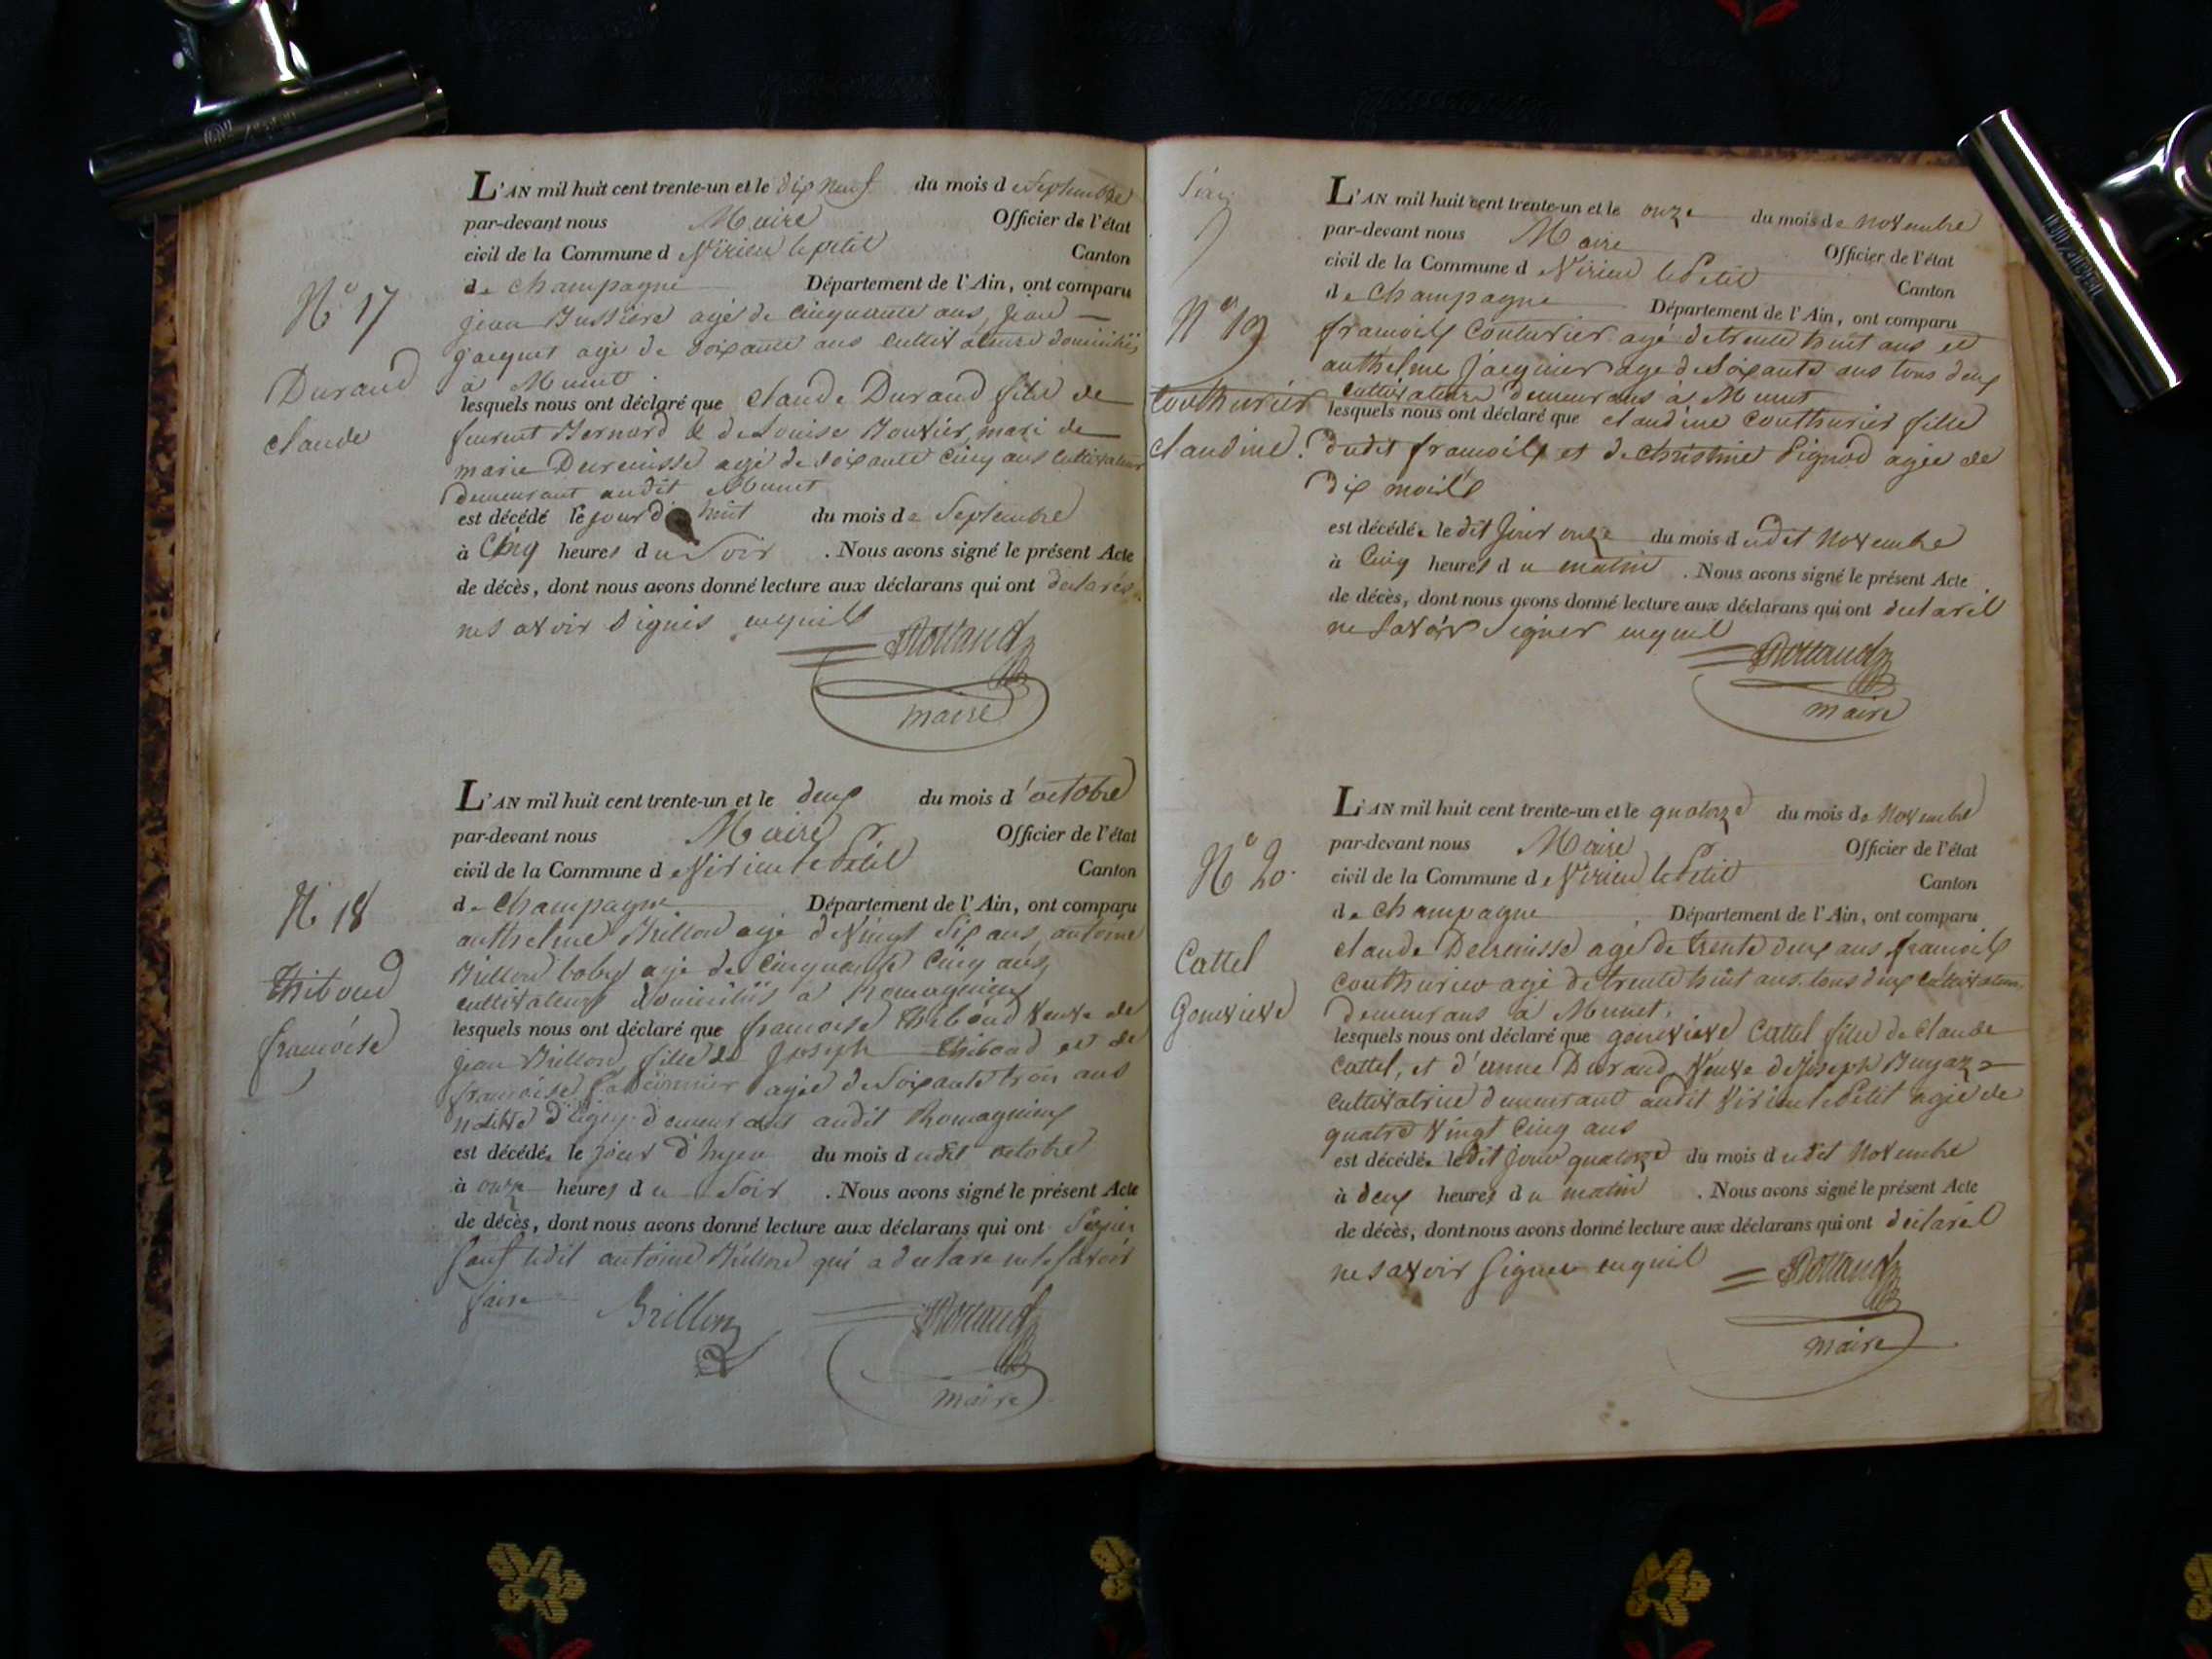 L'AN mil huit cent trente-un et le dix neuf du mois de Septembre
par-devant nous Maire Officier de l'état
civil de la Commune de Virieu le petit Canton
de Champagne Département de l'Ain, ont comparu
N° 17
jean Bussiere agé de cinquante ans, jean
jacquet agé de Soixante ans cultivateurs domiciliés
à Munet
Durand
claude
lesquels nous ont déclaré que claude Durand fils de
Bernard & de Louise Bouvier mari de
marie Decroisse agé de soixante cinq ans cultivateur
demeurant audit Munet
est décédé le jour d huit du mois de Septembre
à Cinq heures du Soir . Nous avons signé le présent Acte
de décès, dont nous avons donné lecture aux déclarans qui ont
ne savoir signés
Rolland
maire
L'AN mil huit cent trente-un et le deux du mois d'octobre
par-devant nous Maire Officier de l'état
civil de la Commune de Virieu le Petit Canton
de Champagne Département de l'Ain, ont comparu
N° 18
anthelme Brillon agé de Vingt Six ans, antoine
Brillon agé de Cinquante Cinq ans,
cultivateurs domiciliés à Romagnieux
Thiboud
françoise
lesquels nous ont déclaré que françoise Thiboud Veuve de
jean Brillon fille de Joseph Thiboud et de
françoise agée de Soixante trois ans
native demeurant audit Romagnieux
est décédée le jour d'hyer du mois dudit octobre
à onze heures du Soir . Nous avons signé le présent Acte
de décès, dont nous avons donné lecture aux déclarans qui ont
Sauf ledit antoine Brillon qui a declaré ne le savoir
faire
Brillon
Rolland
maire
L'AN mil huit cent trente-un et le onze du mois de novembre
par-devant nous Maire Officier de l'état
civil de la Commune de Virieu le Petit Canton
de Champagne Département de l'Ain, ont comparu
N° 19
francoils Couturier agé de trente huit ans et
anthelme Jacquier agé de Soixante ans tous deux
cultivateurs demeurans à Munet
Couthurier
claudine.
lesquels nous ont déclaré que claudine couthurier fille
dudit francoils et de christine Pignod agée de
dix moils
est décédée le dit jour onze du mois dudit novembre
à Cinq heures du matin . Nous avons signé le présent Acte
de décès, dont nous avons donné lecture aux déclarans qui ont declaré
ne Savoir Signer enquil
Rolland
maire
L'AN mil huit cent trente-un et le quatorze du mois de novembre
par-devant nous Maire Officier de l'état
civil de la Commune de Virieu le Petit Canton
de Champagne Département de l'Ain, ont comparu
N° 20.
Cattel
Genevieve
claude Decroisse agé de trente deux ans francoils
couthurier agé de trente huit ans. tous deux cultivateurs
demeurans à Munet,
lesquels nous ont déclaré que genevieve Cattel fille de Claude
Cattel, et d'anne Durand, Veuve de Joseph Bugaz
cultivatrice demeurant audit Virieu le Petit agée de
quatre Vingt Cinq ans
est décédée ledit jour quatorze du mois dudit novembre
à deux heures du matin . Nous avons signé le présent Acte
de décès, dont nous avons donné lecture aux déclarans qui ont declaré
ne savoir signer enquil
Rolland
maire